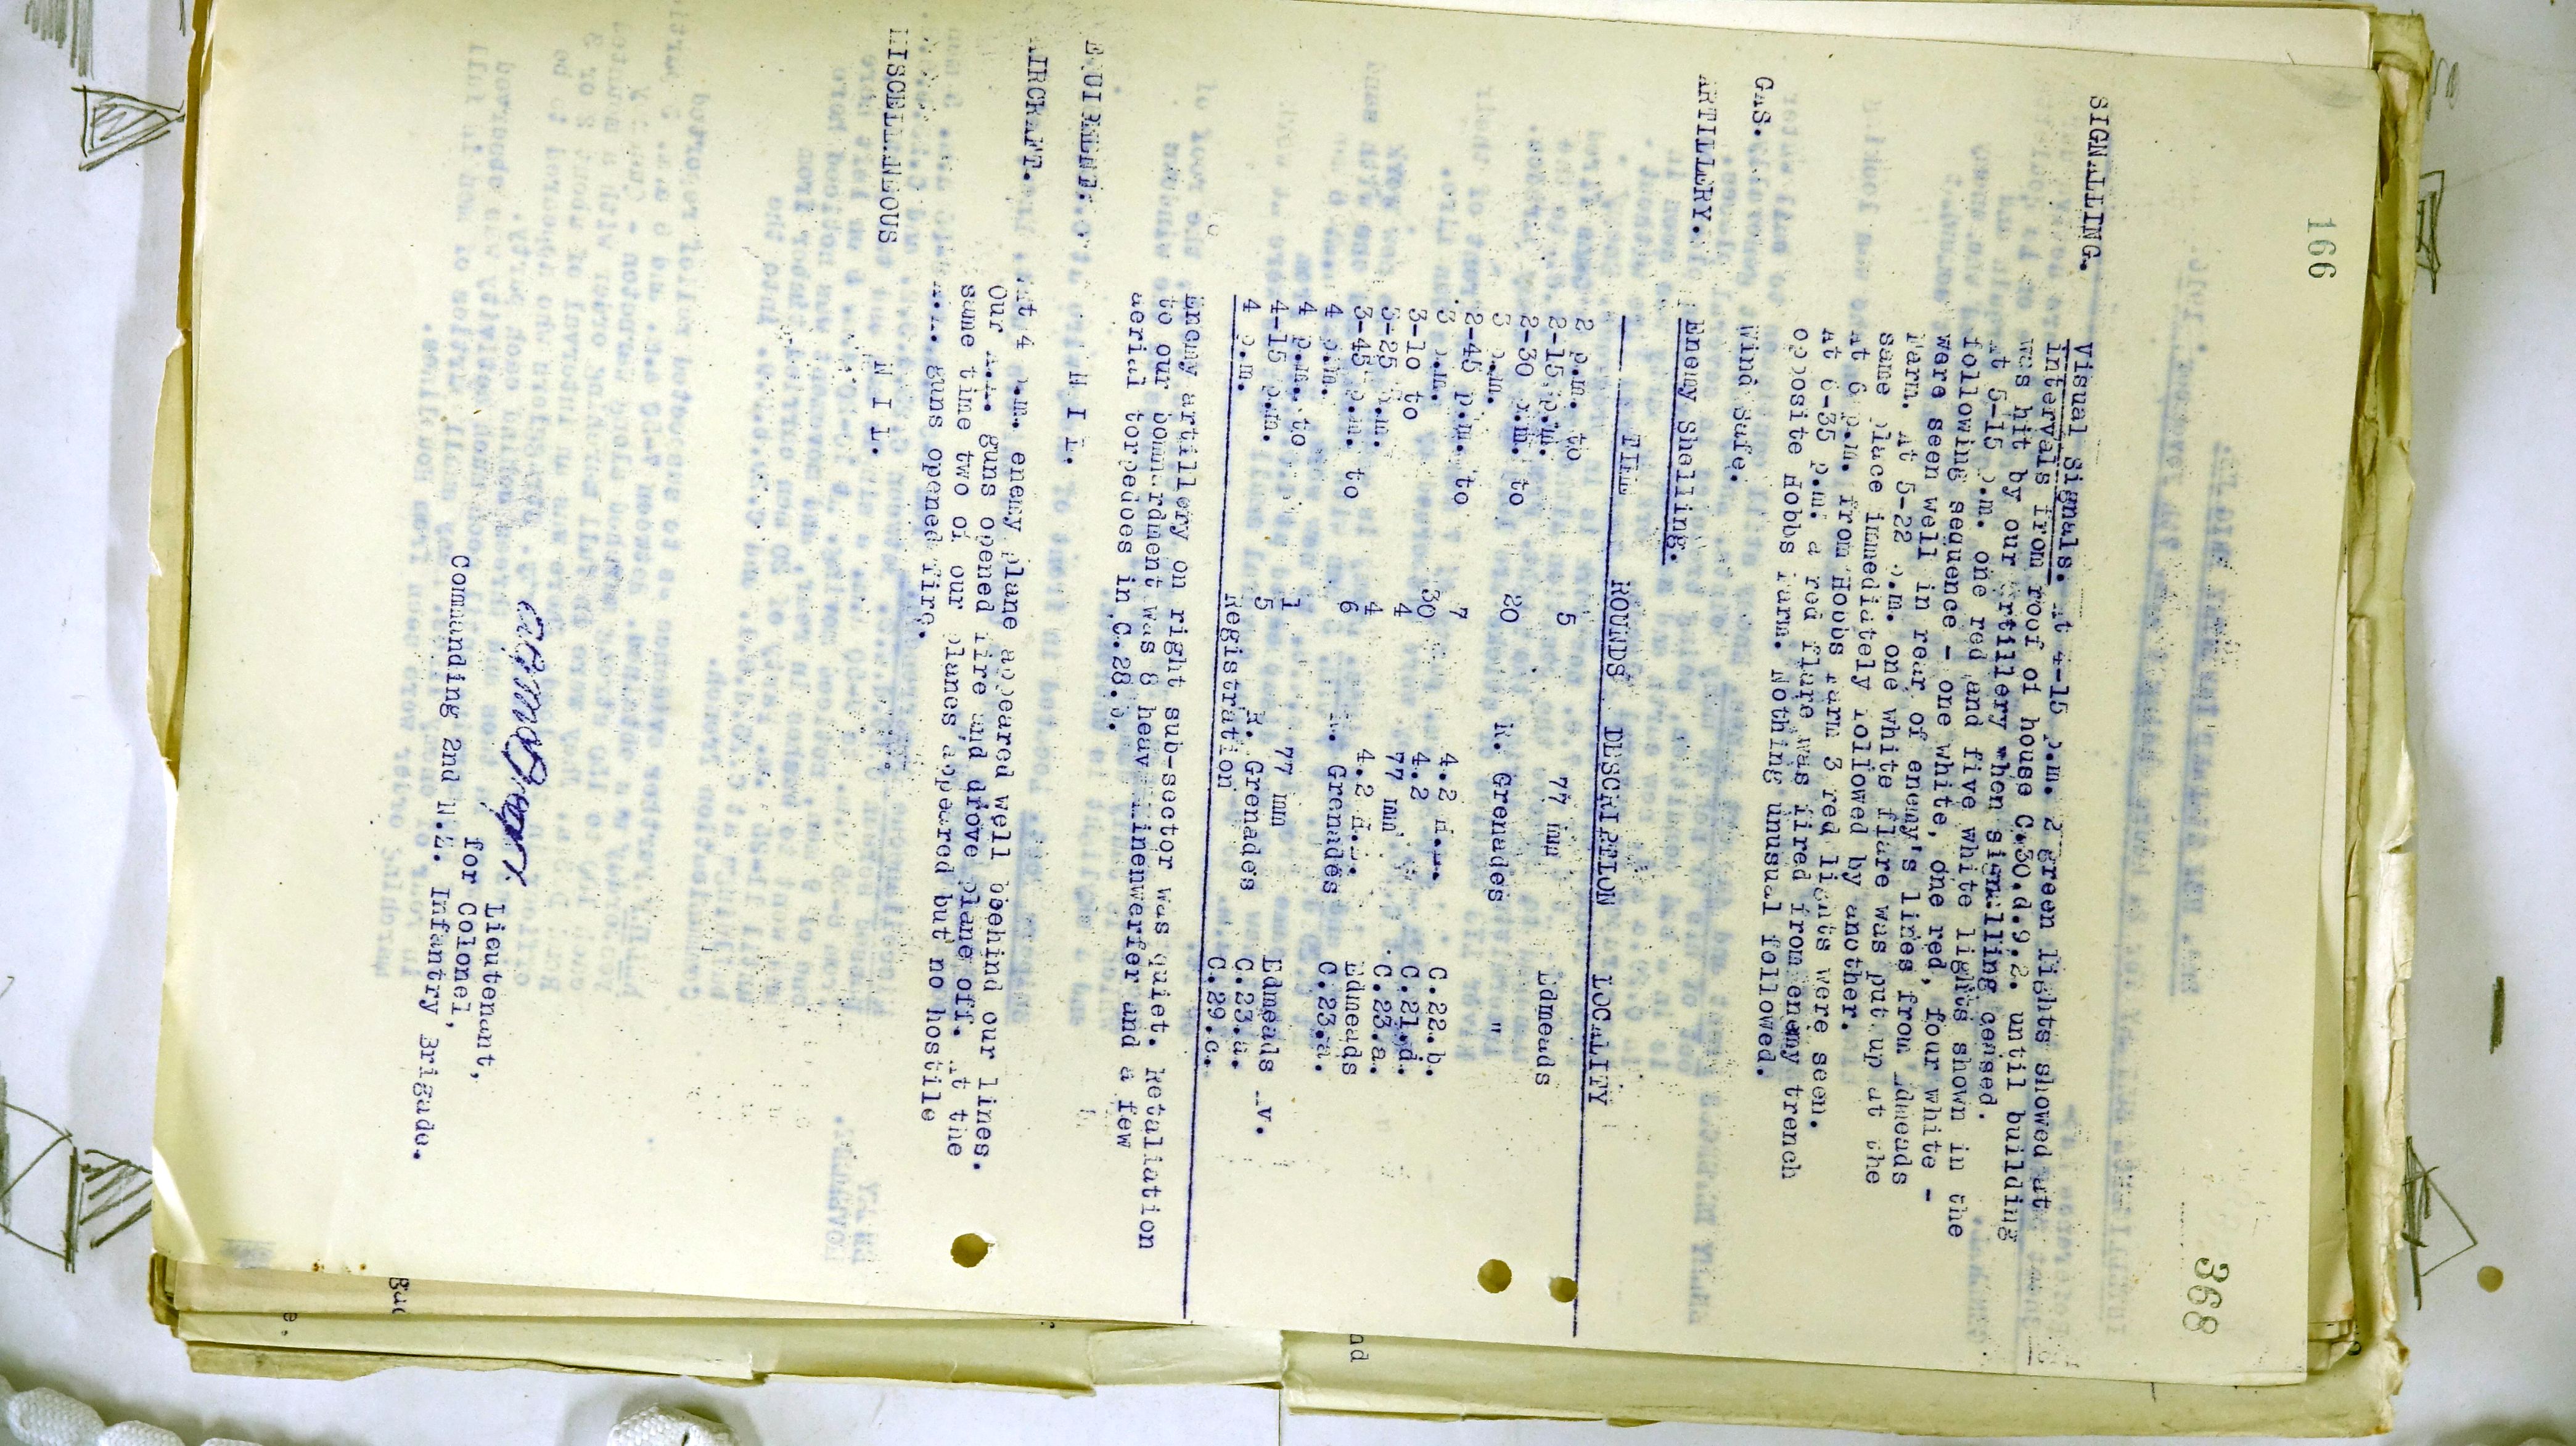 166
368
SIGNALLING.
Visual Signals. At 4-15 p.m. 2 green lights showed at
intervals from roof of house C.30.d.9.2. until building
was hit by our artillery when signalling ceased.
At 5-15 p.m. one red and five white lights shown in the
following sequence - one white, one red, four white -
were seen well in rear of enemy's lines from Edmeads
Farm. At 5-22 p.m. one white flare was put up at the
same place immediately followed by another.
At 6 p.m. from Hobbs Farm 3 red lights were seen.
At 6-35 p.m. a red flare was fired from enemy trench
opposite Hobbs Farm. Nothing unusual followed.
GAS. Wind Safe.
ARTILLERY. Enemy Shelling.
TIME ROUNDS DESCRIPTION LOCALITY
2 p.m. to
2-15 p.m. 5 77 mm Edmeads
2-30 p.m. to
3 p.m. 20 R. Grenades "
2-45 p.m. to
3 p.m. 7 4.2 C.22.b.
3-10 to 30 4.2 C.21.d.
3-25 p.m. 4 77 mm C.23.a.
3-45 p.m. to 4 4.2 Edmeads
4 p.m. 6 R. Grenades C.23.a.
4 p.m. to
4-15 p.m. 1 77 mm Edmeads Av.
4 p.m. 5 R. Grenades C.23.a.
Registration C.29.c.
Enemy artillery on right sub-sector was quiet. Retaliation
to our bombardment was 8 heavy minenwerfer and a few
aerial torpedoes in C.28.
EQUIPMENT. N I L.
AIRCRAFT. At 4 p.m. enemy plane appeared well behind our lines.
Our A.A. guns opened fire and drove plane off. At the
same time two of our planes appeared but no hostile
A.A. guns opened fire.
MISCELLANEOUS N I L.
Lieutenant,
for Colonel,
Commanding 2nd N.Z. Infantry Brigade.